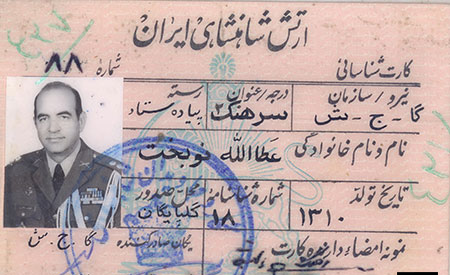 ارتش شاهنشاهی ایران
کارت شناسائی
شماره ۸۸
نیرو / سازمان
درجه / عنوان
رسته
گا - ج - ش
سرهنگ ۲
پیاده ستاد
نام و نام خانوادگی
عطاالله نوبخت
تاریخ تولد
شماره شناسنامه
محل صدور
۱۳۱۰
۱۸
گلپایگان
نمونه امضاء دارنده کارت
یگان صادر کننده
گا - ج - ش